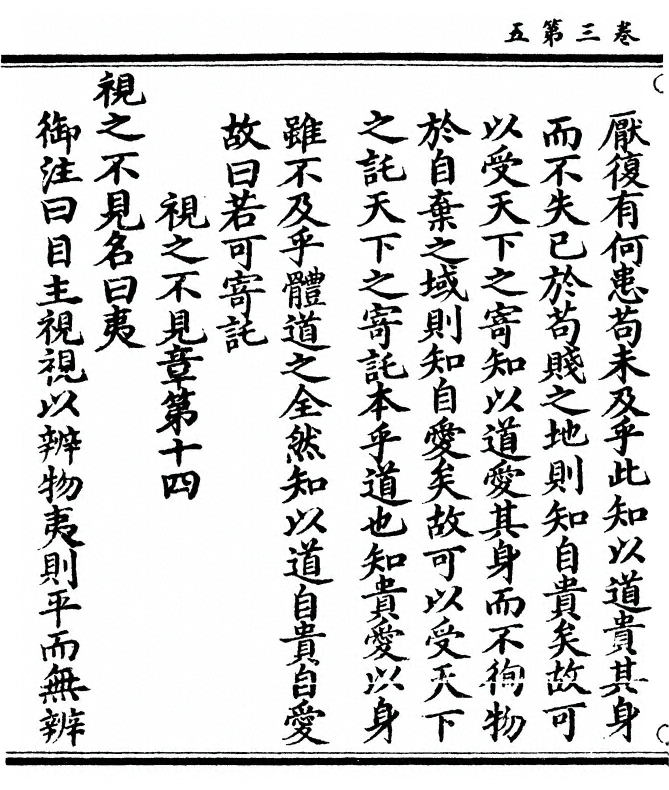 卷三第五
厭復有何患苟未及乎此知以道貴其身
而不失已於苟賤之地則知自貴矣故可
以受天下之寄知以道愛其身而不徇物
於自棄之域則知自愛矣故可以受天下
之託天下之寄託本乎道也知貴愛以身
雖不及乎體道之全然知以道自貴自愛
故曰若可寄託
視之不見章第十四
視之不見名曰夷
御注曰目主視視以辨物夷則平而無辨